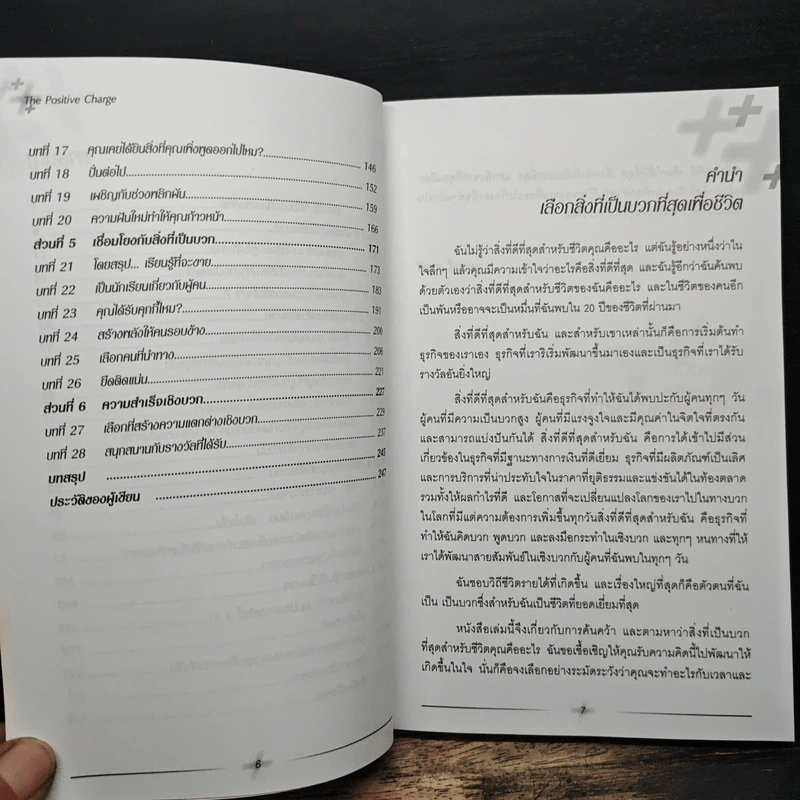 The Positive Charge
บทที่ 17 คุณเคยได้ยินสิ่งที่คุณเพิ่งพูดออกไปไหม? 146
บทที่ 18 ปั่นต่อไป 152
บทที่ 19 เผชิญกับช่วงพลิกผัน 159
บทที่ 20 ความฝันใหม่ทำให้คุณก้าวหน้า 166
ส่วนที่ 5 เชื่อมโยงกับสิ่งที่เป็นบวก 171
บทที่ 21 โดยสรุป... เรียนรู้ที่จะขาย 173
บทที่ 22 เป็นนักเรียนเกี่ยวกับผู้คน 183
บทที่ 23 คุณได้รับคุกกี้ไหม? 191
บทที่ 24 สร้างพลังให้คนรอบข้าง 200
บทที่ 25 เลือกคนที่นำทาง 206
บทที่ 26 ยึดติดแน่น 221
ส่วนที่ 6 ความสำเร็จเชิงบวก 227
บทที่ 27 เลือกที่สร้างความแตกต่างเชิงบวก 229
บทที่ 28 สนุกสนานกับรางวัลที่ได้รับ 237
บทสรุป 245
ประวัติของผู้เขียน 247
6
คำนำ
เลือกสิ่งที่เป็นบวกที่สุดเพื่อชีวิต
ฉันไม่รู้ว่าสิ่งที่ดีที่สุดสำหรับชีวิตคุณคืออะไร แต่ฉันรู้อย่างหนึ่งว่าใน
ใจลึกๆ แล้วคุณมีความเข้าใจว่าอะไรคือสิ่งที่ดีที่สุด และฉันรู้อีกว่าฉันค้นพบ
ด้วยตัวเองว่าสิ่งที่ดีที่สุดสำหรับชีวิตของฉันคืออะไร และในชีวิตของคนอีก
เป็นพันหรืออาจจะเป็นหมื่นที่ฉันพบใน 20 ปีของชีวิตที่ผ่านมา
สิ่งที่ดีที่สุดสำหรับฉัน และสำหรับเขาเหล่านั้นก็คือการเริ่มต้นทำ
ธุรกิจของเราเอง ธุรกิจที่เราริเริ่มพัฒนาขึ้นมาเองและเป็นธุรกิจที่เราได้รับ
รางวัลอันยิ่งใหญ่
สิ่งที่ดีที่สุดสำหรับฉันคือธุรกิจที่ทำให้ฉันได้พบปะกับผู้คนทุกๆ วัน
ผู้คนที่มีความเป็นบวกสูง ผู้คนที่มีแรงจูงใจและมีคุณค่าในจิตใจที่ตรงกัน
และสามารถแบ่งปันกันได้ สิ่งที่ดีที่สุดสำหรับฉัน คือการได้เข้าไปมีส่วน
เกี่ยวข้องในธุรกิจที่มีฐานะทางการเงินที่ดีเยี่ยม ธุรกิจที่มีผลิตภัณฑ์เป็นเลิศ
และการบริการที่น่าประทับใจในราคาที่ยุติธรรมและแข่งขันได้ในท้องตลาด
รวมทั้งให้ผลกำไรที่ดี และโอกาสที่จะเปลี่ยนแปลงโลกของเราไปในทางบวก
ในโลกที่มีแต่ความต้องการเพิ่มขึ้นทุกวันสิ่งที่ดีที่สุดสำหรับฉัน คือธุรกิจที่
ทำให้ฉันคิดบวก พูดบวก และลงมือกระทำในเชิงบวก และทุกๆ หนทางที่ให้
เราได้พัฒนาสายสัมพันธ์ในเชิงบวกกับผู้คนที่ฉันพบในทุกๆ วัน
ฉันชอบวิถีชีวิตรายได้ที่เกิดขึ้น และเรื่องใหญ่ที่สุดก็คือตัวตนที่ฉัน
เป็น เป็นบวกซึ่งสำหรับฉันเป็นชีวิตที่ยอดเยี่ยมที่สุด
หนังสือเล่มนี้จึงเกี่ยวกับการค้นคว้า และตามหาว่าสิ่งที่เป็นบวก
ที่สุดสำหรับชีวิตคุณคืออะไร ฉันขอเชื้อเชิญให้คุณรับความคิดนี้ไปพัฒนาให้
เกิดขึ้นในใจ นั่นก็คือจงเลือกอย่างระมัดระวังว่าคุณจะทำอะไรกับเวลาและ
7